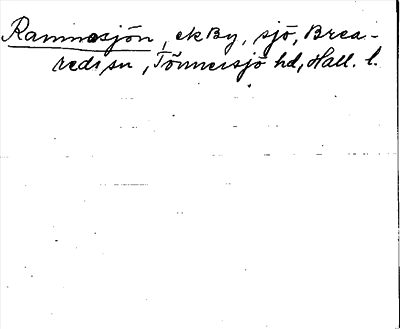 Rammsjön, ek By, sjö, Brea-
reds sn, Tönnersjö hd, Hall. l.